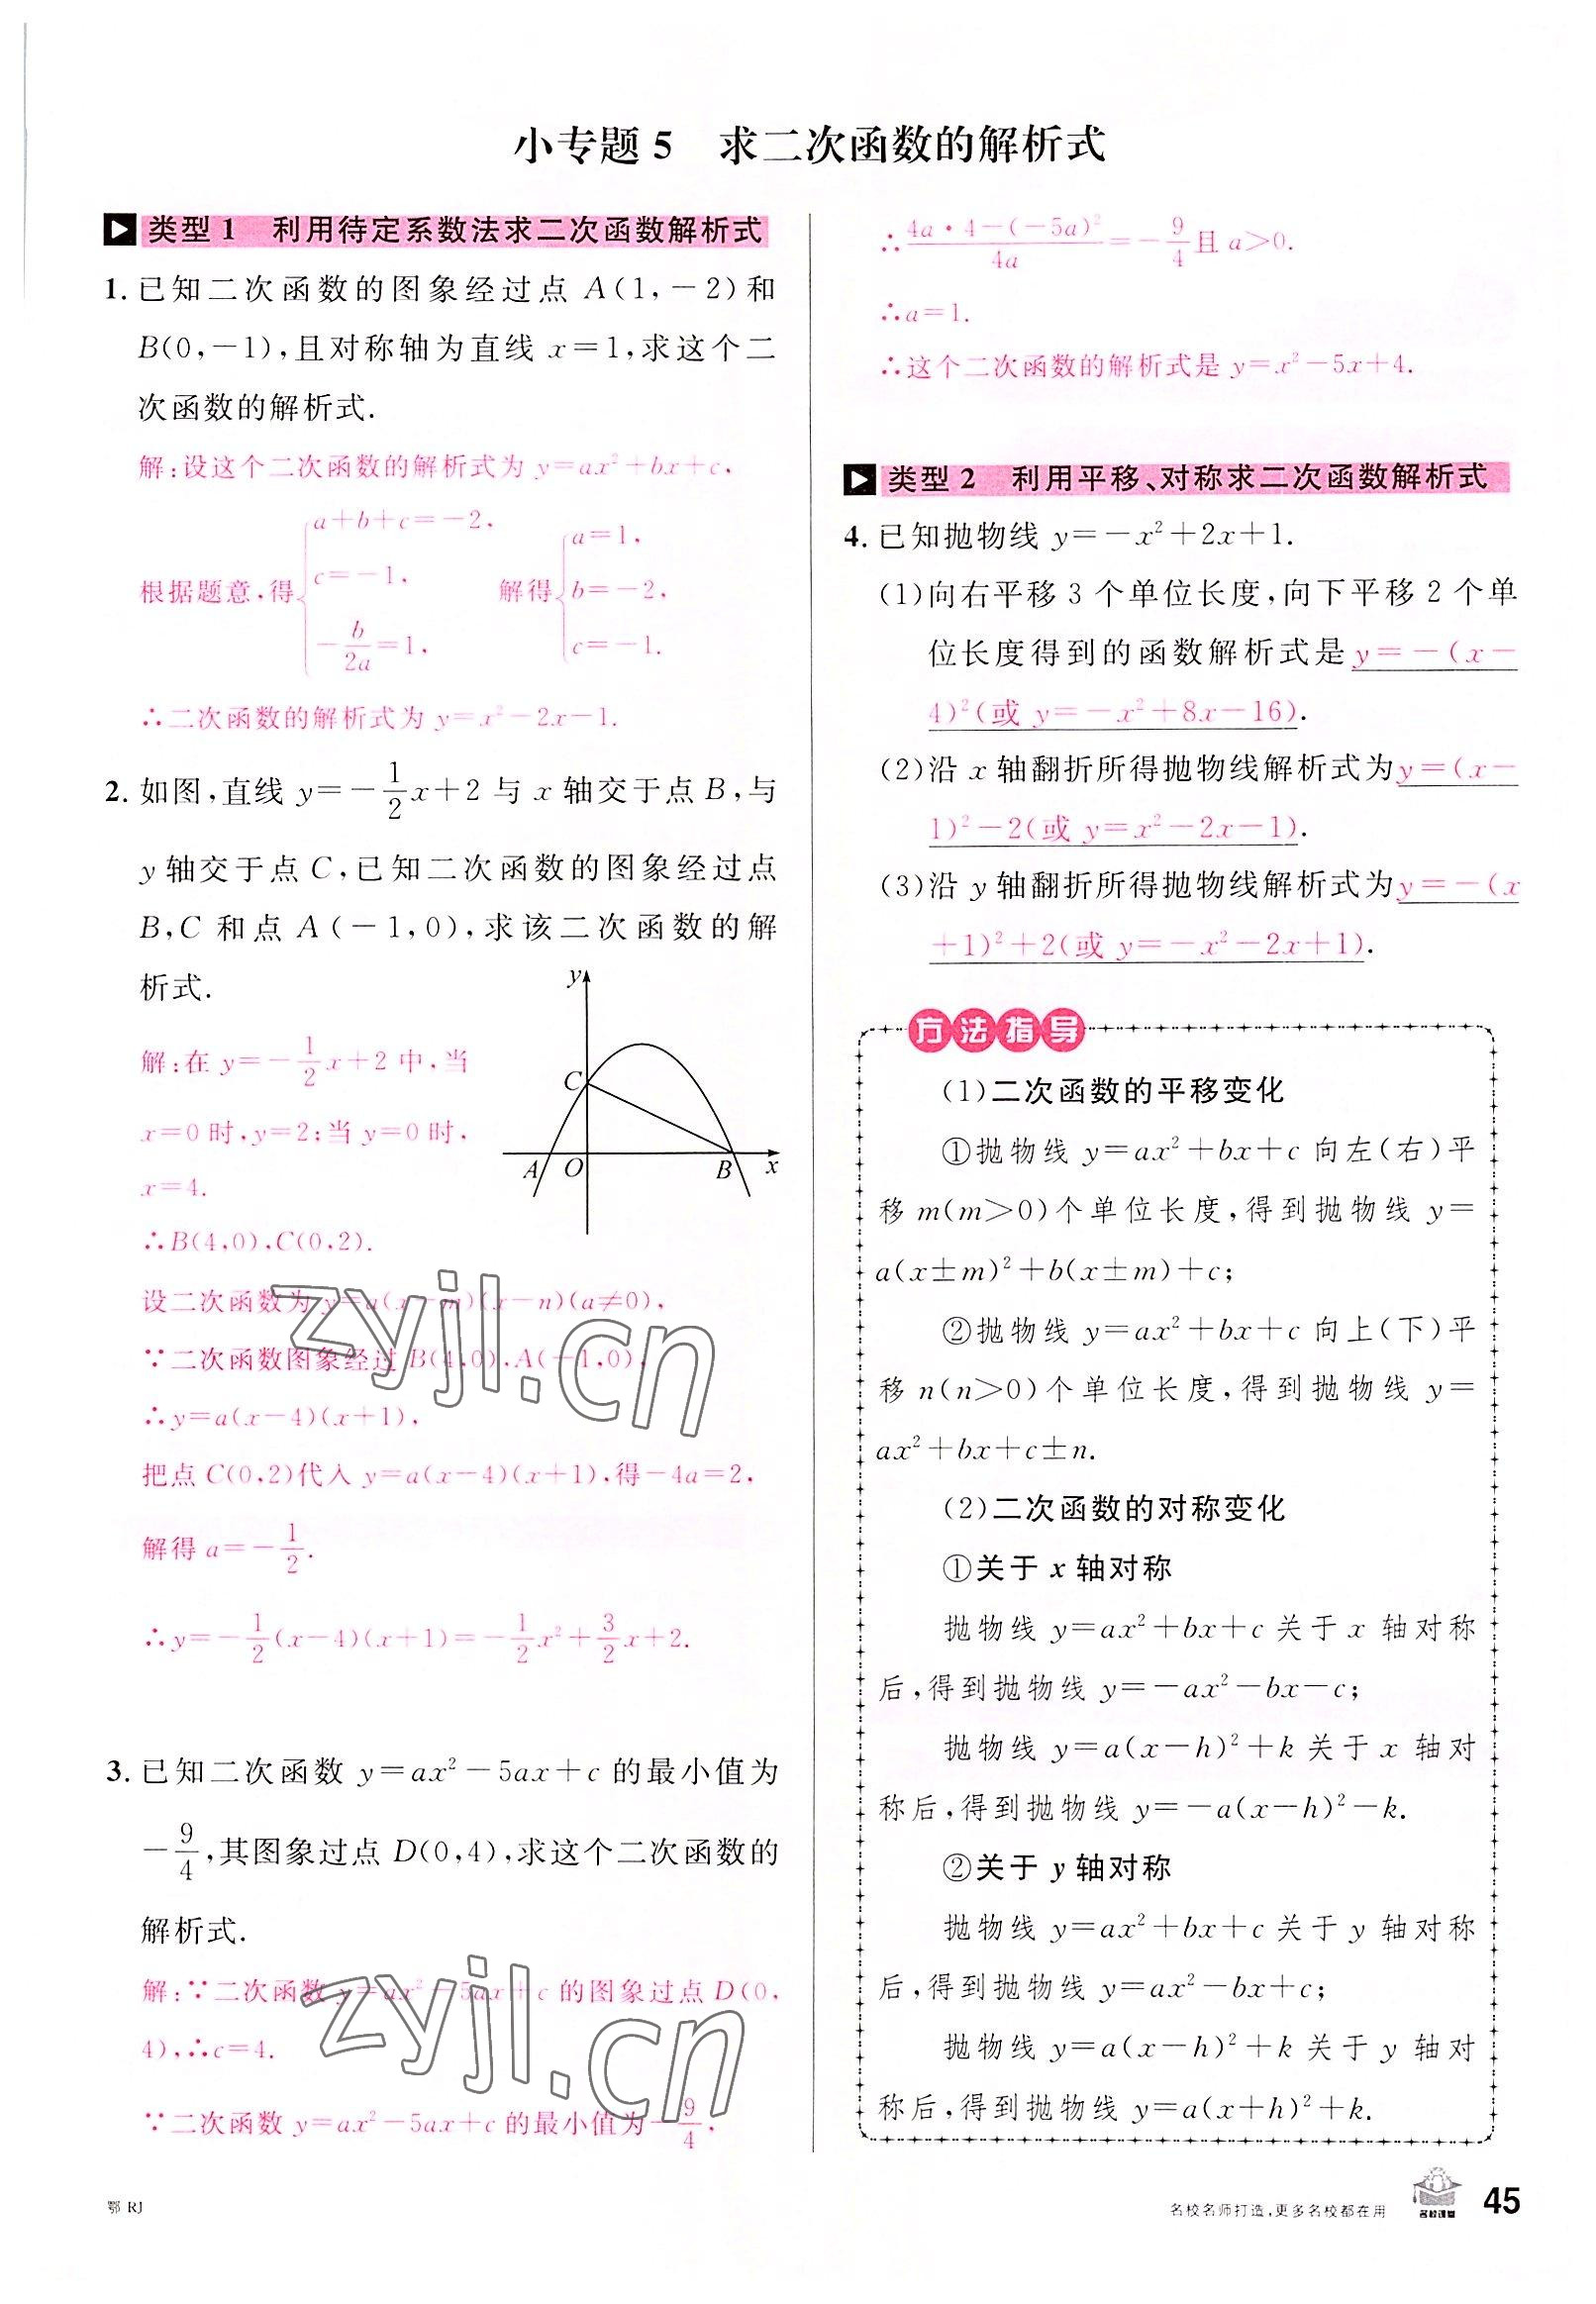 小专题 5　求二次函数的解析式
类型 1　利用待定系数法求二次函数解析式
1. 已知二次函数的图象经过点 A(1,-2)和
B(0,-1),且对称轴为直线 x=1,求这个二
次函数的解析式.
解:设这个二次函数的解析式为 y=ax²+bx+c,
根据题意,得{a+b+c=-2, c=-1, -b/2a=1, 解得{a=1, b=-2, c=-1.
∴二次函数的解析式为 y=x²-2x-1.
2. 如图,直线 y=-1/2x+2 与 x 轴交于点 B,与
y 轴交于点 C,已知二次函数的图象经过点
B,C 和点 A(-1,0),求该二次函数的解
析式.
y
C
A
O
B
x
解:在 y=-1/2x+2 中,当
x=0 时,y=2;当 y=0 时,
x=4.
∴B(4,0),C(0,2).
设二次函数为 y=a(x-m)(x-n)(a≠0),
∵二次函数图象经过 B(4,0),A(-1,0),
∴y=a(x-4)(x+1),
把点 C(0,2)代入 y=a(x-4)(x+1),得-4a=2,
解得 a=-1/2.
∴y=-1/2(x-4)(x+1)=-1/2x²+3/2x+2.
3. 已知二次函数 y=ax²-5ax+c 的最小值为
-9/4,其图象过点 D(0,4),求这个二次函数的
解析式.
解:∵二次函数 y=ax²-5ax+c 的图象过点 D(0,
4),∴c=4.
∵二次函数 y=ax²-5ax+c 的最小值为-9/4,
∴(4a·4-(-5a)²)/4a=-9/4且 a>0.
∴a=1.
∴这个二次函数的解析式是 y=x²-5x+4.
类型 2　利用平移、对称求二次函数解析式
4. 已知抛物线 y=-x²+2x+1.
(1)向右平移 3 个单位长度,向下平移 2 个单
位长度得到的函数解析式是y=-(x-
4)²(或 y=-x²+8x-16).
(2)沿 x 轴翻折所得抛物线解析式为y=(x-
1)²-2(或 y=x²-2x-1).
(3)沿 y 轴翻折所得抛物线解析式为y=-(x
+1)²+2(或 y=-x²-2x+1).
方法指导
(1)二次函数的平移变化
①抛物线 y=ax²+bx+c 向左(右)平
移 m(m>0)个单位长度,得到抛物线 y=
a(x±m)²+b(x±m)+c;
②抛物线 y=ax²+bx+c 向上(下)平
移 n(n>0)个单位长度,得到抛物线 y=
ax²+bx+c±n.
(2)二次函数的对称变化
①关于 x 轴对称
抛物线 y=ax²+bx+c 关于 x 轴对称
后,得到抛物线 y=-ax²-bx-c;
抛物线 y=a(x-h)²+k 关于 x 轴对
称后,得到抛物线 y=-a(x-h)²-k.
②关于 y 轴对称
抛物线 y=ax²+bx+c 关于 y 轴对称
后,得到抛物线 y=ax²-bx+c;
抛物线 y=a(x-h)²+k 关于 y 轴对
称后,得到抛物线 y=a(x+h)²+k.
zyjl.cn
zyjl.cn
鄂 RJ
名校名师打造,更多名校都在用
名校课堂
45